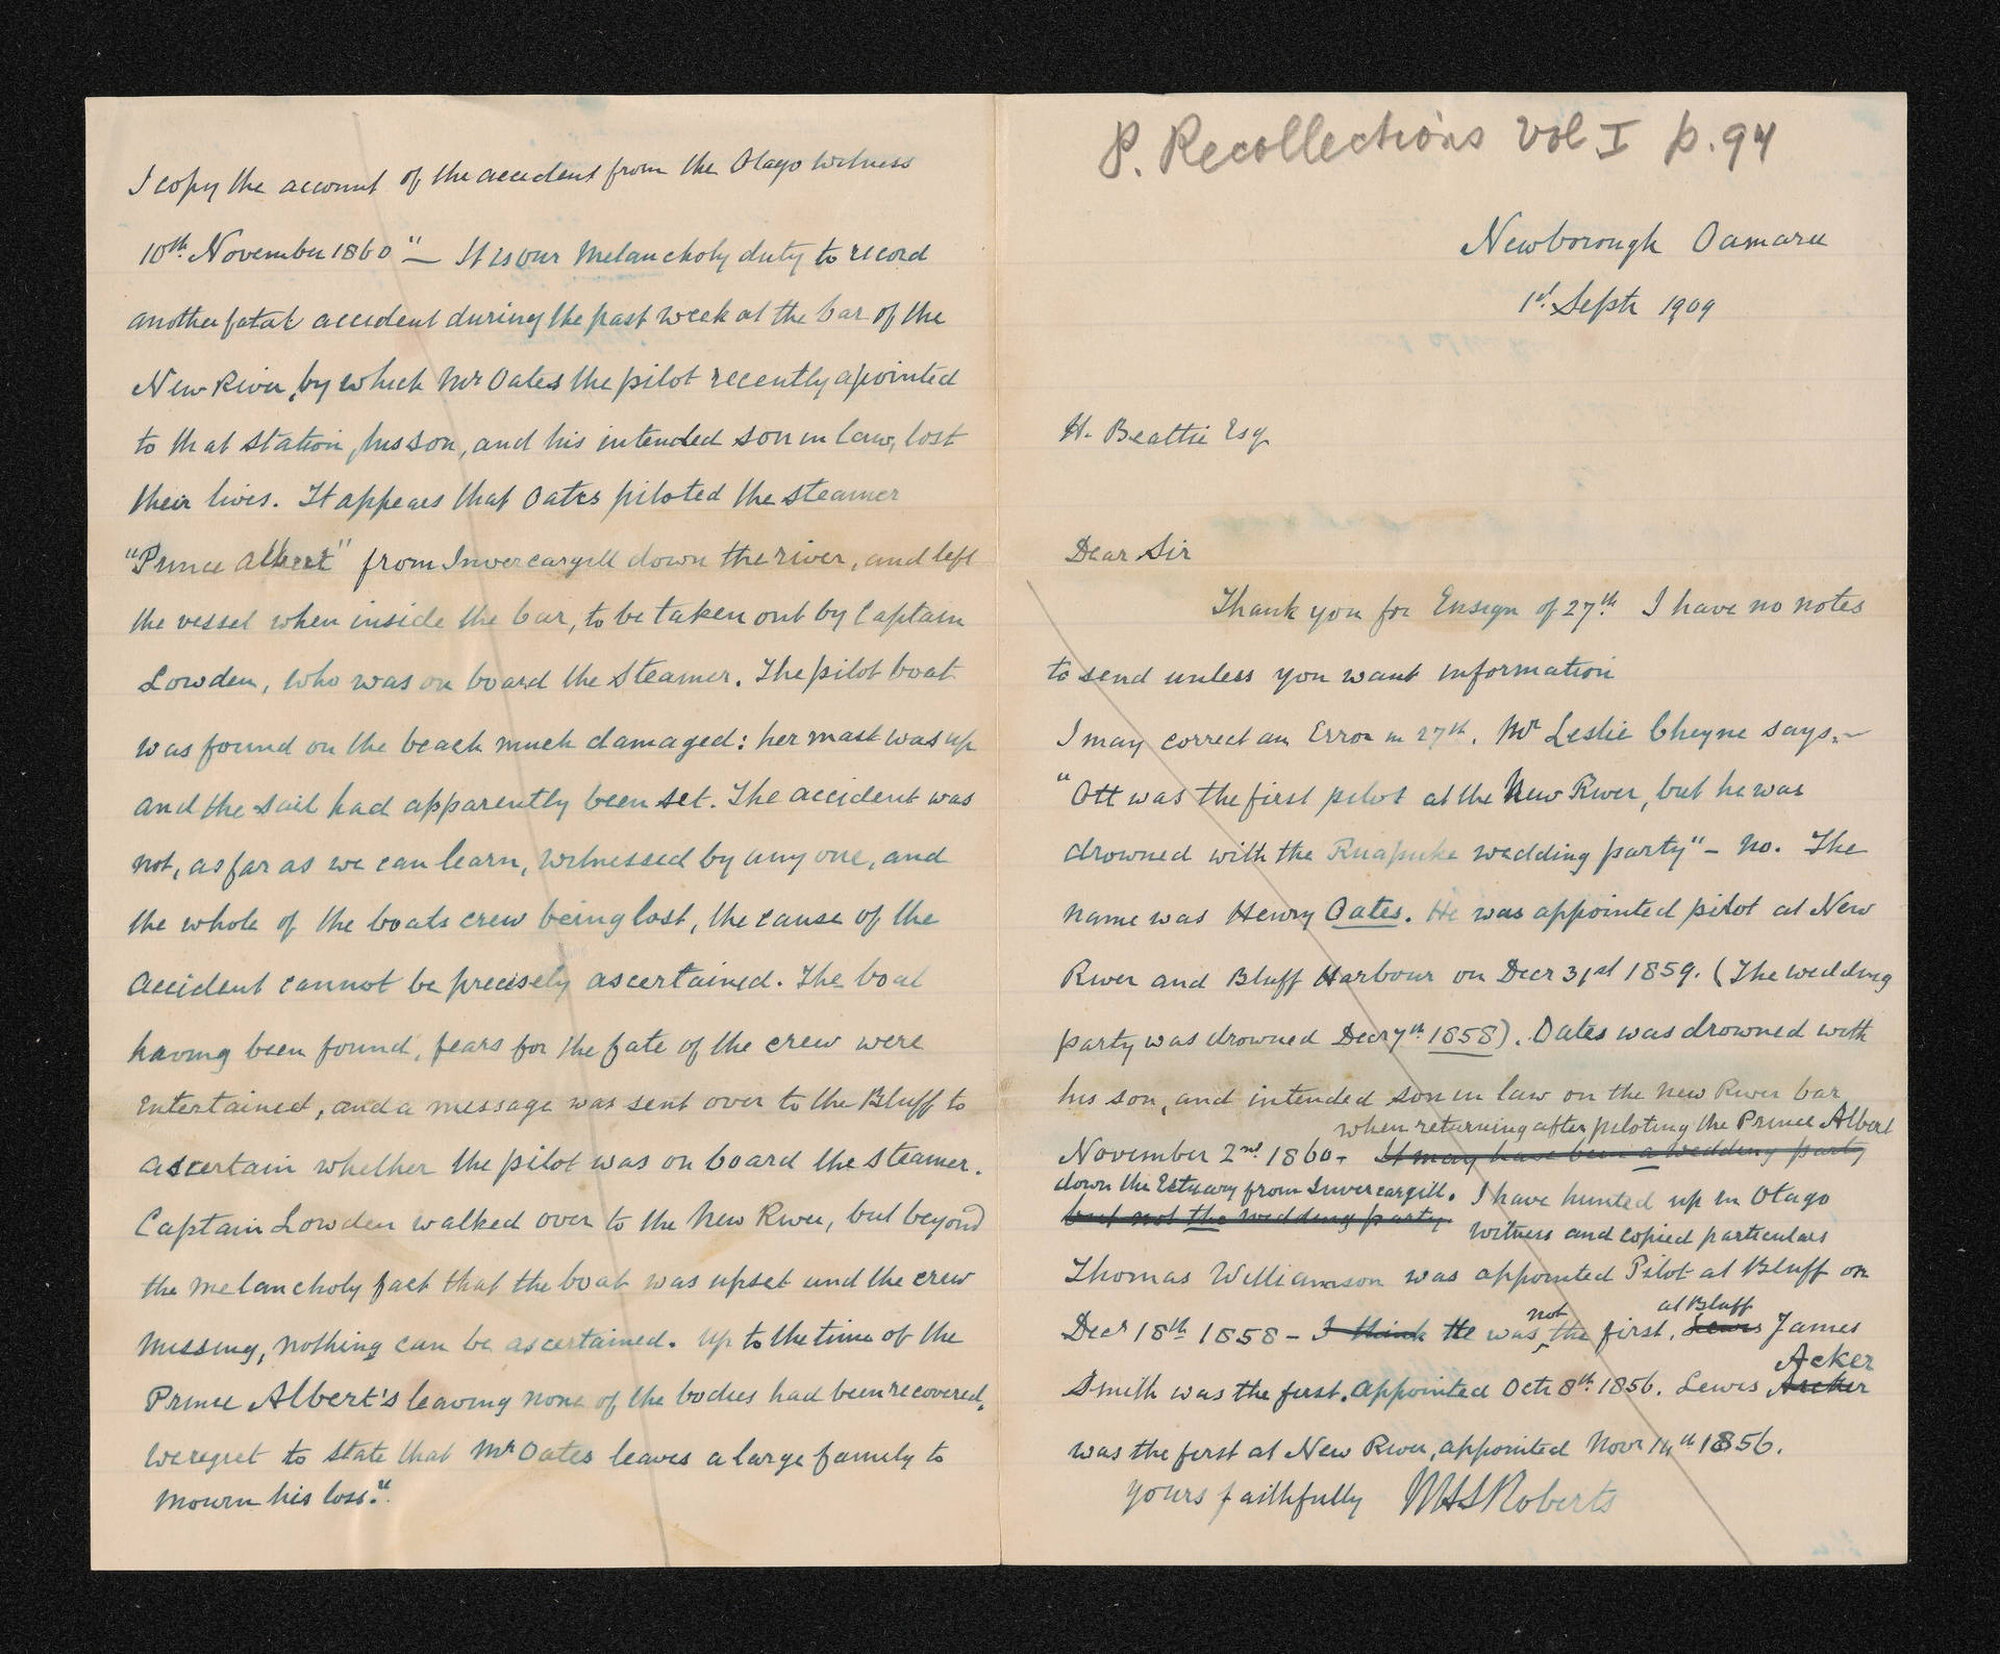 P. Recollections Vol I p.94
Newborough Oamaru
1st Septr 1909
H. Beattie Esq
Dear Sir
Thank you for Ensign of 27th I have no notes
to send unless you want information
I may correct an Error in 27th. Mr Leslie Cheyne says,-
"Ott was the first pilot at the New River, but he was
drowned with the Ruapuke wedding party" - no. The
name was Henry Oates. He was appointed pilot at New
River and Bluff Harbour on Decr 31st 1859. (The wedding
party was drowned Decr 7th 1858). Oates was drowned with
his son, and intended son in law on the New River bar
when returning after piloting the Prince Albert
November 2nd 1860. It may have been a wedding party
down the Estuary from Invercargill. I have hunted up in Otago
but not the wedding party.
Witness and copied particulars
Thomas Williamson was appointed Pilot at Bluff on
not at Bluff
Decr 18th 1858 - I think He was the first. Lewis James
Acker
Smith was the first. appointed Octr 8th 1856. Lewis Arcker
was the first at New River, appointed Novr 14th 1856.
Yours faithfully WHSRoberts
I copy the account of the accident from the Otago Witness
10th November 1860 "- It is our Melancholy duty to record
another fatal accident during the past week at the bar of the
New River, by which Mr Oates the pilot recently apointed
to that station, his son, and his intended son in law, lost
their lives. It appears that Oates piloted the steamer
"Prince Albert" from Invercargill down the river, and left
the vessel when inside the bar, to be taken out by Captain
Lowden, who was on board the Steamer. The pilot boat
was found on the beach much damaged: her mast was up
and the sail had apparently been set. The accident was
not, as far as we can learn, witnessed by any one, and
the whole of the boats crew being lost, the cause of the
accident cannot be precisely ascertained. The boat
having been found, fears for the fate of the crew were
Entertained, and a message was sent over to the Bluff to
ascertain whether the pilot was on board the steamer.
Captain Lowden walked over to the New River, but beyond
the melancholy fact that the boat was upset and the crew
missing, nothing can be ascertained. Up to the time of the
Prince Albert's leaving none of the bodies had been recovered.
We regret to state that Mr Oates leaves a large family to
mourn his loss."